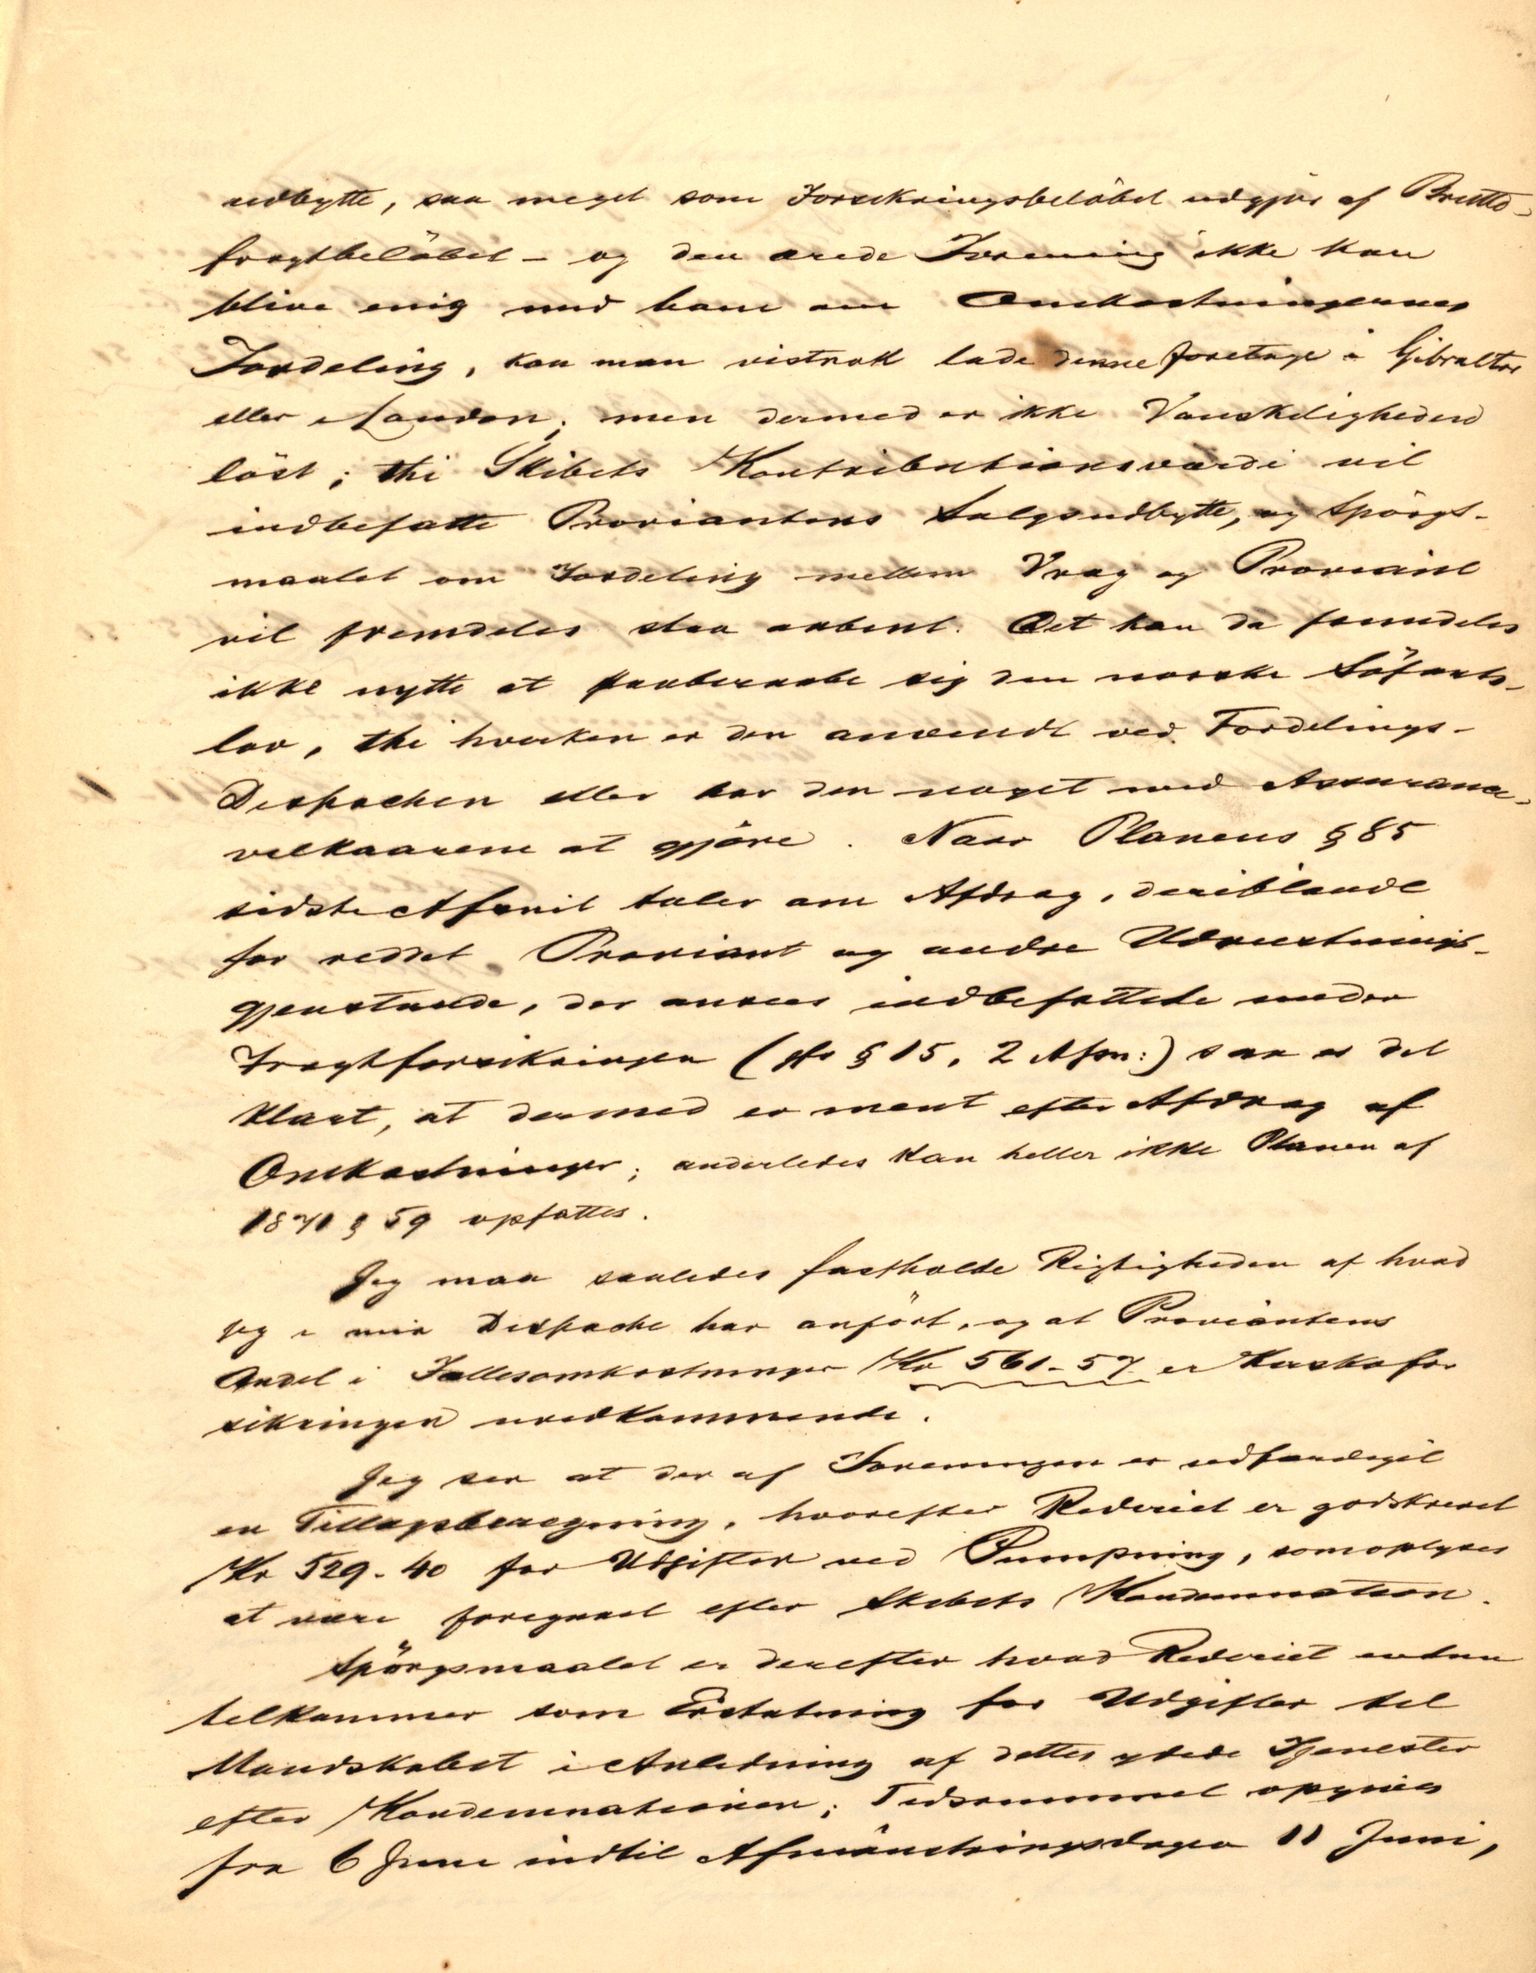 udbytte, saa meget som Forsikringsbeløbet udgjør af Brutto-
fragtbeløbet – og den ærede Forening ikke kan
blive enig med ham om Omkostningernes
Fordeling, kan man vistnok lade denne foretage i Gibraltar
eller London; men dermed er ikke Vanskeligheden
löst; thi Skibets Kontributionsværdi vil
indbefatte Proviantens Salgsudbytte, og Spörgs-
maalet om Fordeling mellem Vrag og Proviant
vil fremdeles staa aabent. Det kan da fremdeles
ikke nytte at paaberaabe sig den norske Söfarts-
lov, thi hverken er den anvendt ved Fordelings-
Despachen eller har den noget med Assurance-
vilkaarene at gjöre. Naar Planens § 85
sidste Afsnit taler om Afdrag, deriblandt
for reddet Proviant og andre Udrustnings-
gjenstande, der ansees indbefattede under
Fragtforsikringen (jfr § 15, 2 Afsn:) saa er det
klart, at dermed er ment efter Afdrag af
Omkostninger; anderledes kan heller ikke Planen af
1871 § 59 opfattes.
Jeg maa saaledes fastholde Rigtigheden af hvad
jeg i min Despache har anfört, og at Proviantens
Andel i Fællesomkostninger Kr 561-57 er Kaskofor
sikringen uvedkommende.
Jeg ser at der af Foreningen er udfærdiget
en Tillægsberegning, hvorefter Rederiet er godskrevet
Kr 529.40 for Udgifter ved Pumpning, som oplyses
at være foregaaet efter Skibets Kondemnation.
Spörgsmaalet er derefter hvad Rederiet endnu
tilkommer som Erstatning for Udgifter til
Mandskabet i Anledning af dettes ydede Tjenester
efter Kondemnationen; Tidsrummet opgives
fra 6 Juni indtil Afmönstringsdagen 11 Juni,